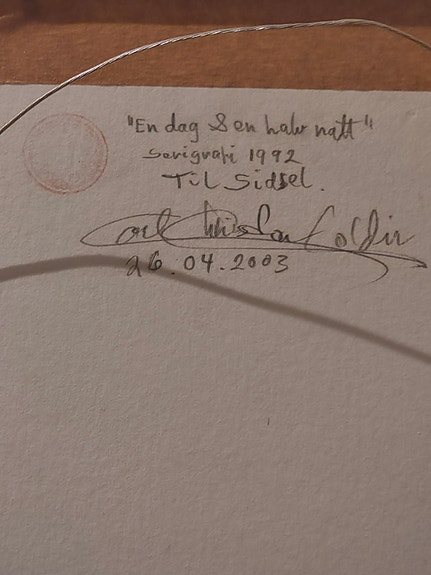 "En dag & en halv natt"
Serigrafi 1992
Til Sidsel.
26.04.2003